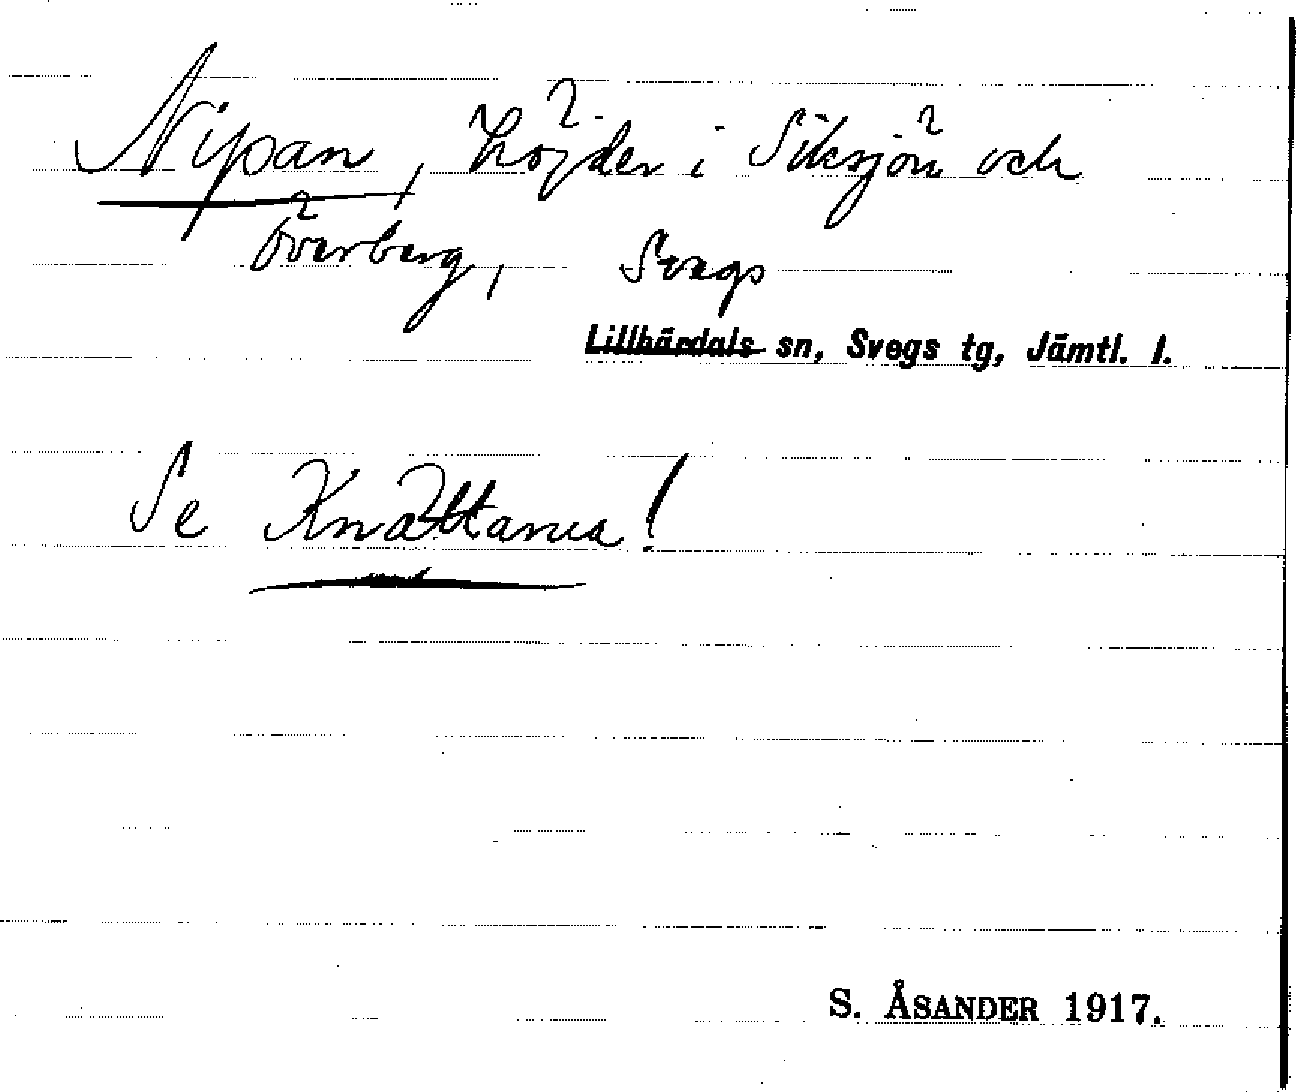 Nipan, höjder i Siksjön och
Överberg, Svegs
Lillhärdals sn, Svegs tg, Jämtl. l.
Se Knättarna!
S. ÅSANDER 1917.